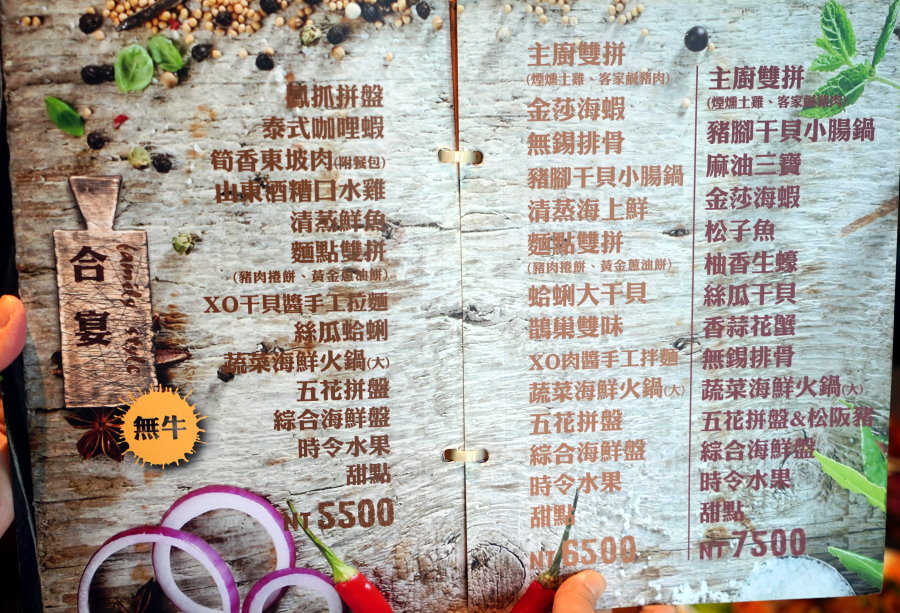 合宴
無牛
鳳抓拼盤
泰式咖哩蝦
筍香東坡肉(附餐包)
山東酒糟口水雞
清蒸鮮魚
麵點雙拼
(豬肉捲餅、黃金蔥油餅)
XO干貝醬手工拉麵
絲瓜蛤蜊
蔬菜海鮮火鍋(大)
五花拼盤
綜合海鮮盤
時令水果
甜點
NT 5500
主廚雙拼
(煙燻土雞、客家鹹豬肉)
金莎海蝦
無錫排骨
豬腳干貝小腸鍋
清蒸海上鮮
麵點雙拼
(豬肉捲餅、黃金蔥油餅)
蛤蜊大干貝
鵲巢雙味
XO肉醬手工拌麵
蔬菜海鮮火鍋(大)
五花拼盤
綜合海鮮盤
時令水果
甜點
NT 6500
主廚雙拼
(煙燻土雞、客家鹹豬肉)
豬腳干貝小腸鍋
麻油三寶
金莎海蝦
松子魚
柚香生蠔
絲瓜干貝
香蒜花蟹
無錫排骨
蔬菜海鮮火鍋(大)
五花拼盤&松阪豬
綜合海鮮盤
時令水果
甜點
NT 7500